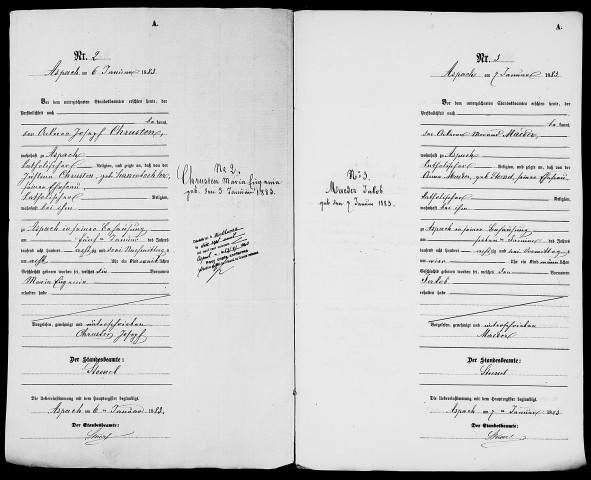 A.
Nr. 2
Aspach am 6 Januar 1883
Vor dem unterzeichneten Standesbeamten erschien heute, der
Persönlichkeit nach
bekannt,
der Ackerer Josef Chrusten,
wohnhaft zu Aspach
katholischer Religion, und zeigte an, daß von der
Justina Chrusten, geb.
seiner Ehefrau
katholischer Religion,
wohnhaft bei ihm
zu Aspach in seiner Behausung
am fünften Januar des Jahres
tausend acht hundert achtzig und drei Nachmittags
um acht Uhr ein Kind weiblichen
Geschlecht geboren worden sei, welches die Vornamen
Maria Eugenia
erhalten habe
Vorgelesen, genehmigt und unterschrieben
Chrusten Josef
Der Standesbeamte:
Die Uebereinstimmung mit dem Hauptregister beglaubigt.
Aspach am 6 ten Januar 1883
Der Standesbeamte:
No 2.
Chrusten Maria Eugenia
geb. den 5 Januar 1883.
A.
Nr. 3
Aspach am 7 Januar 1883.
Vor dem unterzeichneten Standesbeamten erschien heute, der
Persönlichkeit nach
bekannt,
der Ackerer Maeder,
wohnhaft zu Aspach
katholischer Religion, und zeigte an, daß von der
Anna Maeder, geb. seiner Ehefrau
katholischer Religion,
wohnhaft bei ihm
zu Aspach in seiner Behausung
am siebten Januar des Jahres
tausend acht hundert achtzig und drei Vormittags
um vier Uhr ein Kind männlichen
Geschlecht geboren worden sei, welches den Vornamen
Jakob
erhalten habe
Vorgelesen, genehmigt und unterschrieben
Maeder
Der Standesbeamte:
Die Uebereinstimmung mit dem Hauptregister beglaubigt.
Aspach am 7 ten Januar 1883
Der Standesbeamte:
No 3.
Maeder Jakob
geb. den 7 Januar 1883.